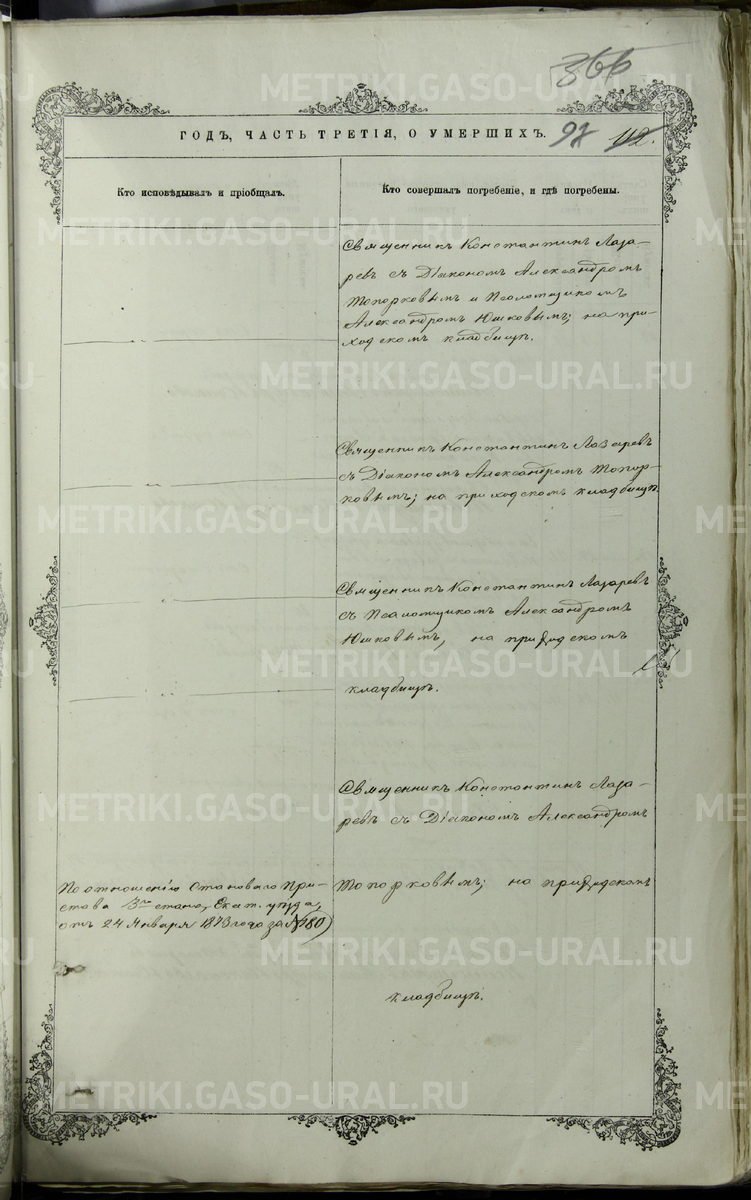 366
ГОДЪ, ЧАСТЬ ТРЕТІЯ, О УМЕРШИХЪ. 97 112.
Кто исповѣдывалъ и пріобщалъ.
Кто совершалъ погребеніе, и гдѣ погребены.
Священникъ Константинъ Лаза-
ревъ съ Діакономъ Александромъ
Топорковымъ и Псаломщикомъ
Александромъ Юшковымъ; на при-
ходскомъ кладбищѣ.
Священникъ Константинъ Лазаревъ
съ Діакономъ Александромъ Топор-
ковымъ; на приходскомъ кладбищѣ.
Священникъ Константинъ Лазаревъ
съ Псаломщикомъ Александромъ
Юшковымъ, на приходскомъ
кладбищѣ.
Священникъ Константинъ Лаза-
ревъ съ Діакономъ Александромъ
Топорковымъ; на приходскомъ
кладбищѣ.
По отношенію Становаго При-
става 3го стана, Екат. уѣзда,
отъ 24 Января 1873 года за №80)
METRIKI.GASO-URAL.RU